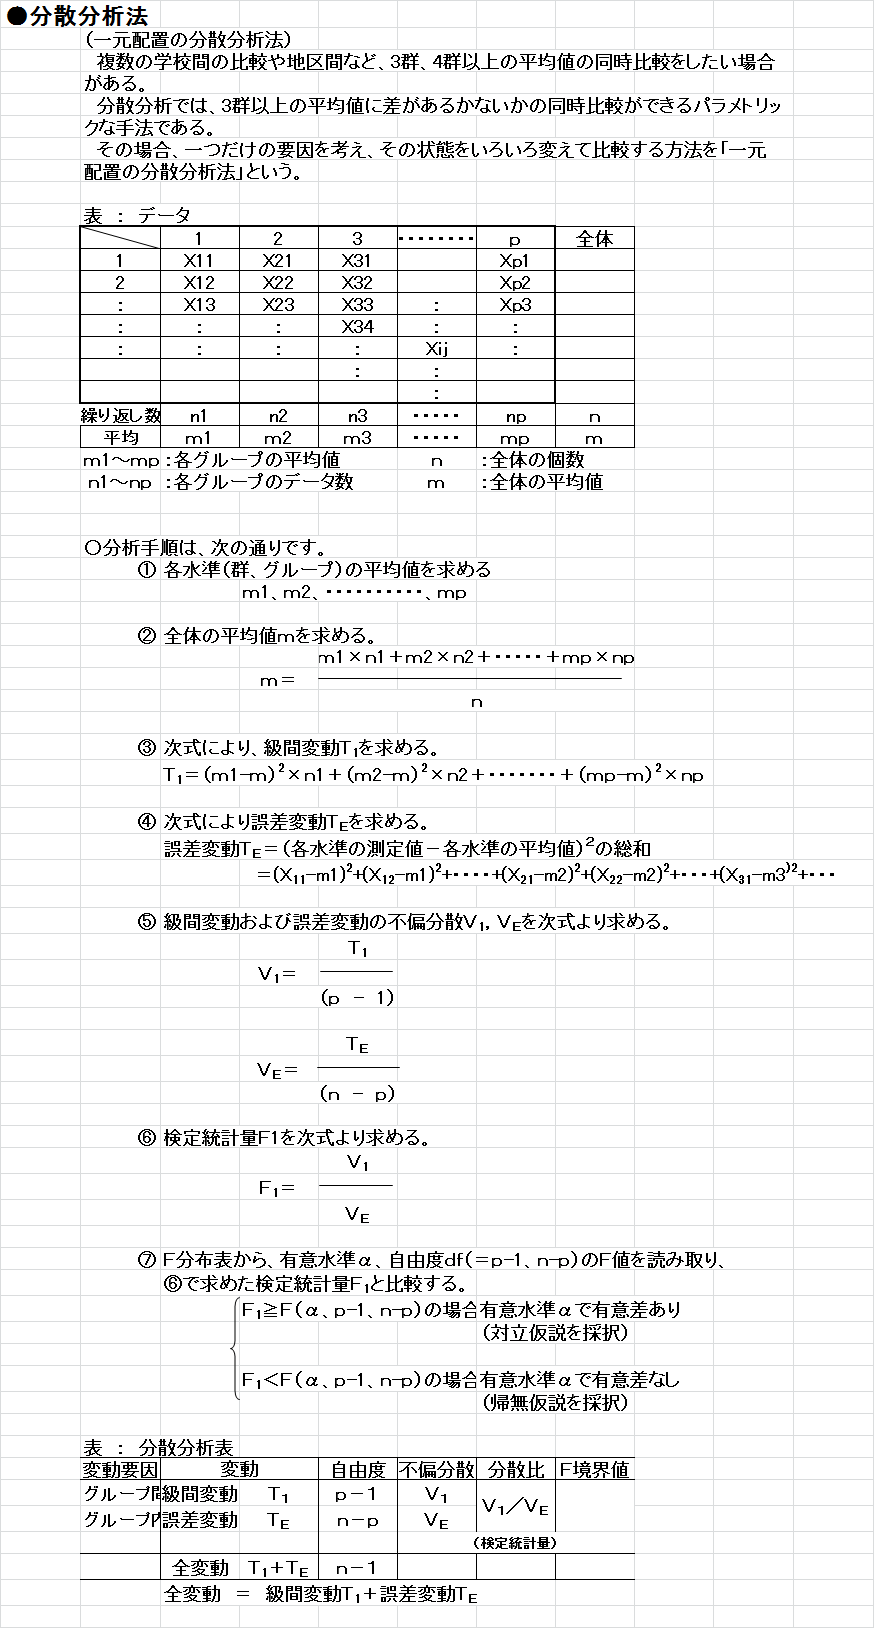 ●分散分析法
(一元配置の分散分析法)
複数の学校間の比較や地区間など、3群、4群以上の平均値の同時比較をしたい場合
がある。
分散分析では、3群以上の平均値に差があるかないかの同時比較ができるパラメトリッ
クな手法である。
その場合、一つだけの要因を考え、その状態をいろいろ変えて比較する方法を「一元
配置の分散分析法」という。
表 : データ
1 2 3 ・・・・・・・・ p 全体
1 X11 X21 X31 Xp1
2 X12 X22 X32 Xp2
: X13 X23 X33 : Xp3
: : : X34 : :
: : : : Xij :
: :
:
繰り返し数 n1 n2 n3 ・・・・・ np n
平均 m1 m2 m3 ・・・・・ mp m
m1～mp :各グループの平均値 n :全体の個数
n1～np :各グループのデータ数 m :全体の平均値
○分析手順は、次の通りです。
① 各水準(群、グループ)の平均値を求める
m1、m2、・・・・・・・・・・、mp
② 全体の平均値mを求める。
m1×n1+m2×n2+・・・・・+mp×np
m=
n
③ 次式により、級間変動T₁を求める。
T₁=(m1-m)²×n1+(m2-m)²×n2+・・・・・・・+(mp-m)²×np
④ 次式により誤差変動TEを求める。
誤差変動TE=(各水準の測定値-各水準の平均値)²の総和
=(X₁₁-m1)²+(X₁₂-m1)²+・・・・+(X₂₁-m2)²+(X₂₂-m2)²+・・・+(X₃₁-m3)²+・・・
⑤ 級間変動および誤差変動の不偏分散V₁, VEを次式より求める。
T₁
V₁=
(p - 1)
TE
VE=
(n - p)
⑥ 検定統計量F1を次式より求める。
V₁
F₁=
VE
⑦ F分布表から、有意水準α、自由度df(=p-1、n-p)のF値を読み取り、
⑥で求めた検定統計量F₁と比較する。
F₁≧F(α、p-1、n-p)の場合有意水準αで有意差あり
(対立仮説を採択)
F₁<F(α、p-1、n-p)の場合有意水準αで有意差なし
(帰無仮説を採択)
表 : 分散分析表
変動要因 変動 自由度 不偏分散 分散比 F境界値
グループ間 級間変動 T₁ p-1 V₁ V₁/VE
グループ内 誤差変動 TE n-p VE
(検定統計量)
全変動 T₁+TE n-1
全変動 = 級間変動T₁+誤差変動TE